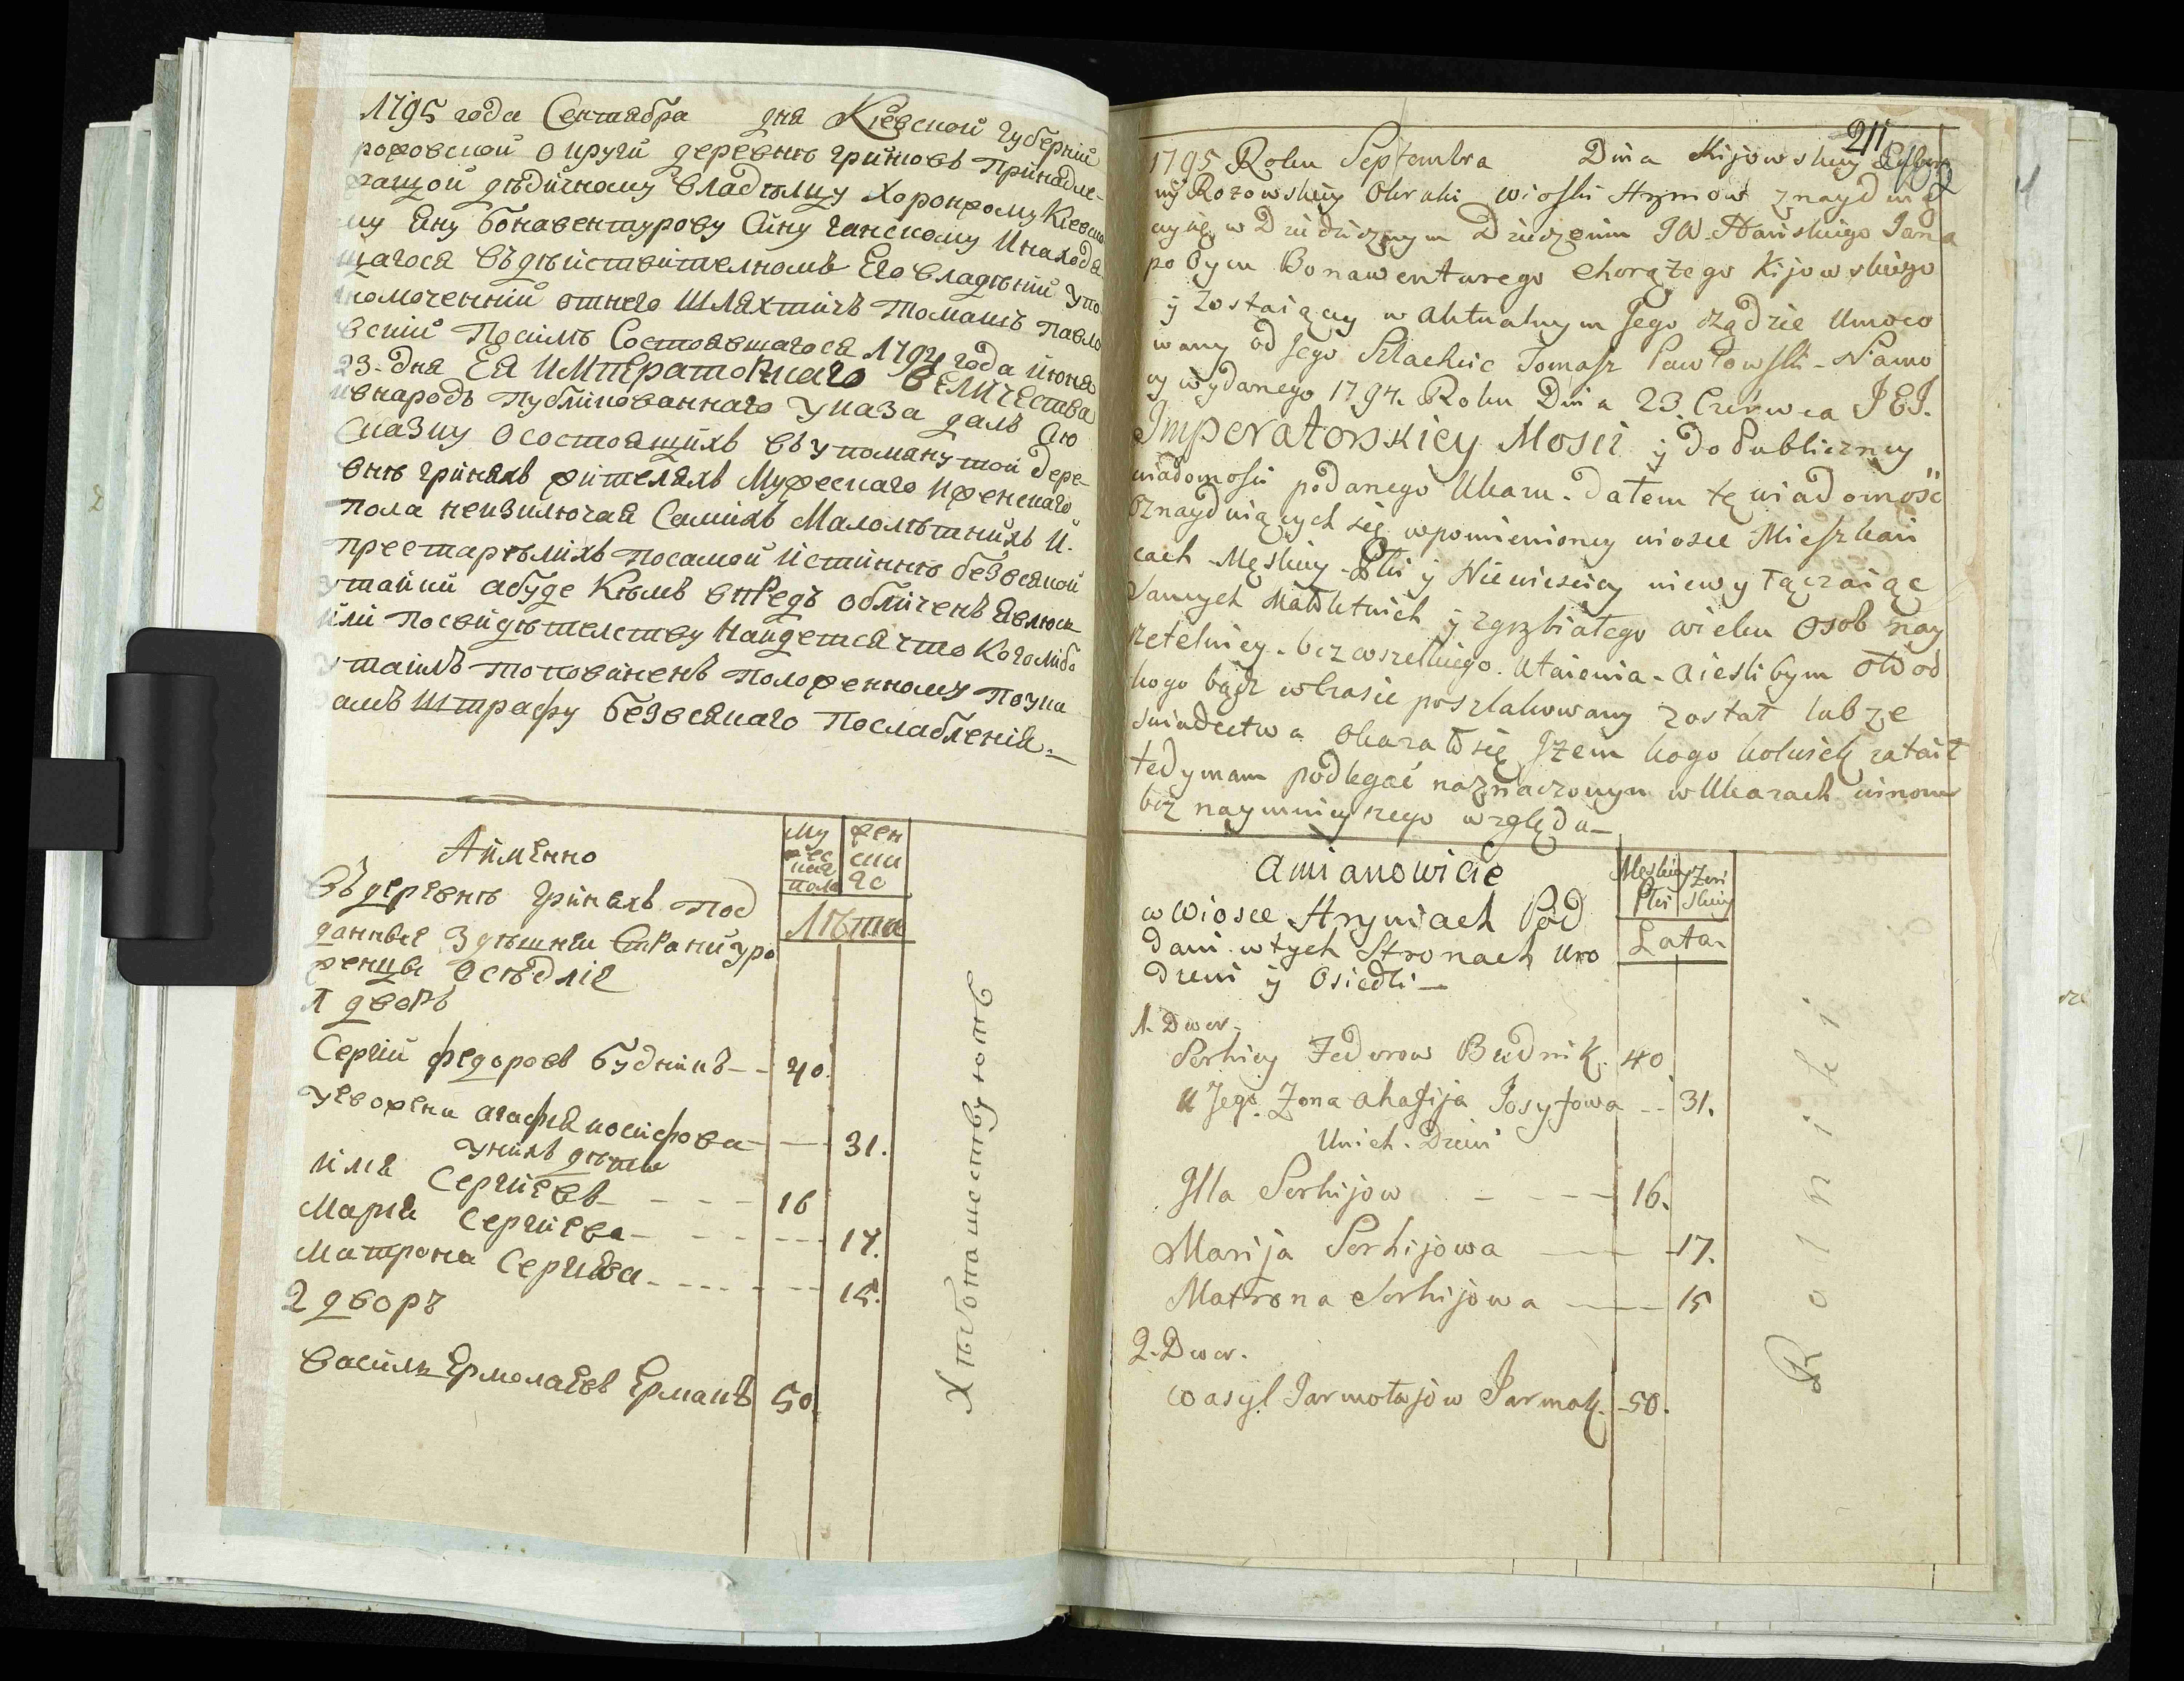 1795 года Сентября дня Кіевской губерніи
роховской округи деревнѣ гриновъ Принадле-
жащой дѣдичному владѣлцу Хоронжому Кіевско
му Яну бонавентурову Сину ганскому Инаходя
щагося въдѣйствителномъ Его владѣніи упо
лномоченній отнего Шляхтичъ Томашъ павло
вскій Посилѣ Состоявшагося 1794 года июня
23. дня Ея ИМПЕРАТОРскаго ВЕЛИЧЕСТВА
ивнародъ публикованнаго указа далъ сію
Сказку осостоящихъ въупомянутой дере-
внѣ гриняхъ жителяхъ Мужескаго Иженскаго
пола неизключая Самихъ Малолѣтнихъ И.
престарѣлихъ посамой истиннѣ безвсякой
утайки абуде Кѣмъ впредъ обличенъ явлюся
или посвидѣтелству найдется что Коголибо
утаилъ то повиненъ положенному поука
замъ Штрафу безвсякаго Послабленія.—
Аимянно
Му жес кая пола
жен ски го
Лѣта
Въдеревнѣ гриняхъ под
данные здѣшней Страни уро
женцы осѣдліе
1 дворъ
Сергій федоровъ будникъ - - 40.
Уевожена агафія иосифова - - 31.
Унихъ дѣти
илля Сергіевъ - - - 16
Марія Сергіева - - - - 17.
Матрона Сергіева - - - - 15.
2 дворъ
Василь Ермолаевъ Ермакъ 50.
Хлѣбопашествуютъ
211
1795 Roku Septembra Dnia Kijowskiey Guber
nij Rożowskiey Okruhi wioski Hryniow znayduią
cyię w Dziedzicznym Dzierżeniu JW. Hańskiego Jana
po Oycu Bonawenturego Chorążego Kijowskiego
y zostaiący w aktualnym Jego rządzie Umoco
wany od Jego Szlachcic Tomasz Pawłowski - Na mo
cy wydanego 1794. Roku Dnia 23. Czerwca JEJ.
Imperatorskiey Mosci y do Publiczney
wiadomosci podanego Ukazu. Datem tę wiadomość
Oznayduiących się wpomienioney wiosce Mieszkań
cach Męskiey Płci y Niewiesciey niewyłączaiąc
Samych Małoletnich y zgrzbiałego wieku Osob nay
rzetelniey. bez wszelkiego. Utaienia. aiesli bym Otwod
kogo bądź wCzasie poszlakowany został lub ze
swiadectwa Okazało się Jżem kogo kolwiek zataił
tedy mam podlegać naznaczonym wUkazach winom
bez naymnieyszego względu—
amianowicie
Męskiey Płci
Żeń skiey
Lata.
w Wiosce Hryniach Pod
dani wtych Stronach Uro
dzeni y Osiedli—
1. Dwor.
Serhiey Fedorow Budnik. 40
u Jego Żona ahafija Josyfowa - - 31.
Unich. Dzieci
Illa Serhijow - - - - 16.
Marija Serhijowa — 17.
Matrona Serhijowa — 15
2. Dwor.
Wasyl Jarmołajow Jarmak. 50.
Rolniki